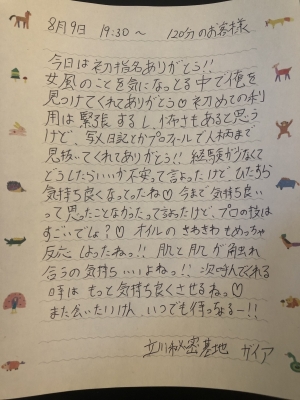 8月9日 19:30〜 120分のお客様
今日は初指名ありがとう!!
女風のことを気になっとる中で俺を
見つけてくれてありがとう♡初めての利
用は緊張するし、怖さもあると思う
けど、写メ日記とかプロフィールで人柄まで
見抜いてくれてありがとう!! 経験が少なくて
どうしたらいいか不安って言よったけど、ひたすら
気持ち良くなってったね♡ 今まで気持ち良い
って思ったことなかったって言よったけど、プロの技は
すごいでしょ?♡ オイルのさわさわもめっちゃ
反応しよったねっ!! 肌と肌が触れ
合うの気持ちいいよねっ!! 次呼んでくれる
時はもっと気持ち良くさせるねっ♡
また会いたいけん、いつでも待っちょるー!!
立川秘密基地 ガイア